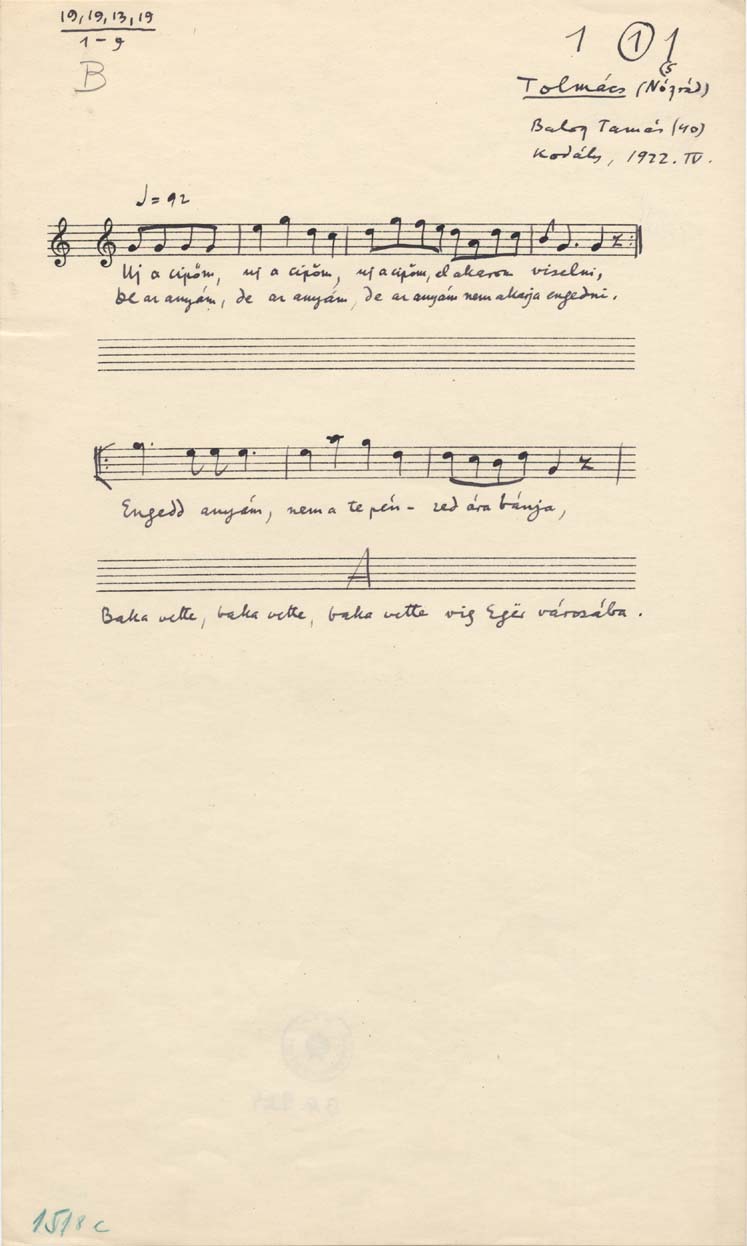 19, 19, 13, 19
1 – 9
B
1 ① 1
(5
Tolmács (Nógrád)
Balog Tamás (40)
Kodály, 1922. IV.
♩= 92
Uj a cipőm, uj a cipőm, uj a cipőm, el akarom viselni,
De az anyám, de az anyám, de az anyám nem akarja engedni.
Engedd anyám, nem a te pén – zed ára bánja,
A
Baka vette, baka vette, baka vette vig Egër városába.
1518 c